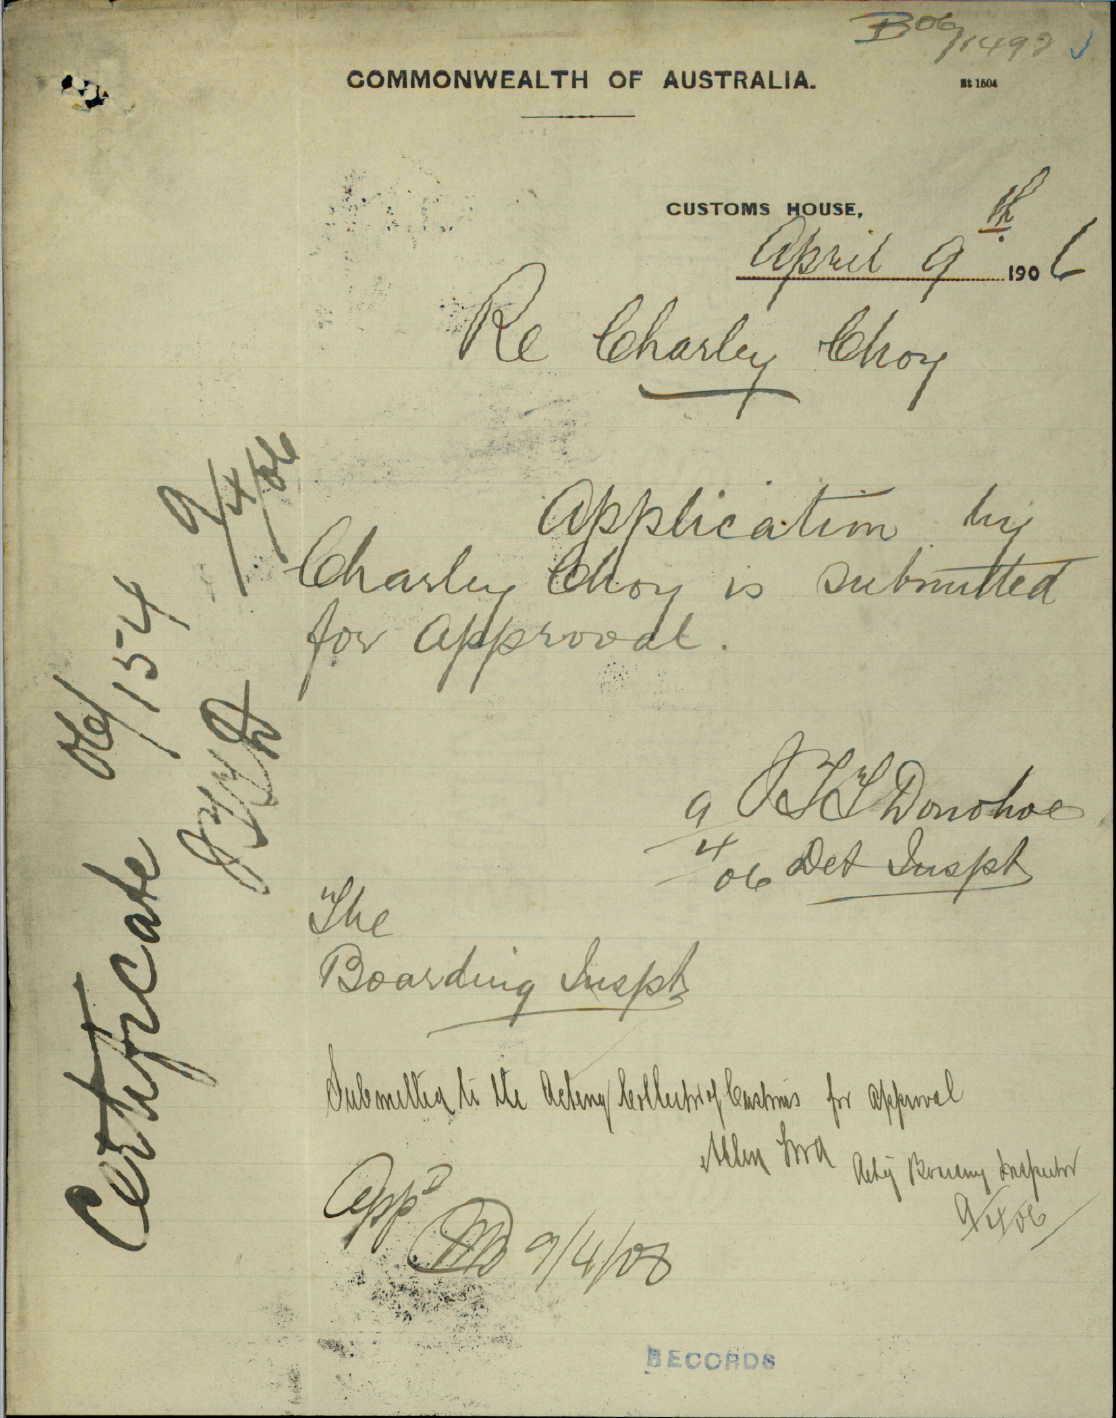 B06/1492
COMMONWEALTH OF AUSTRALIA.
St 1504
CUSTOMS HOUSE,
April 9th 1906
Re Charley Choy
Application by
Charley Choy is submitted
for approval.
J T T Donohoe
9/4/06 Det Inspt
The
Boarding Inspt
Submitted to the Acting Collector of Customs for approval
Actg Boarding Inspector
9/4/06
Appd
9/4/06
RECORDS
Certificate 06/154
9/4/06
JTTD